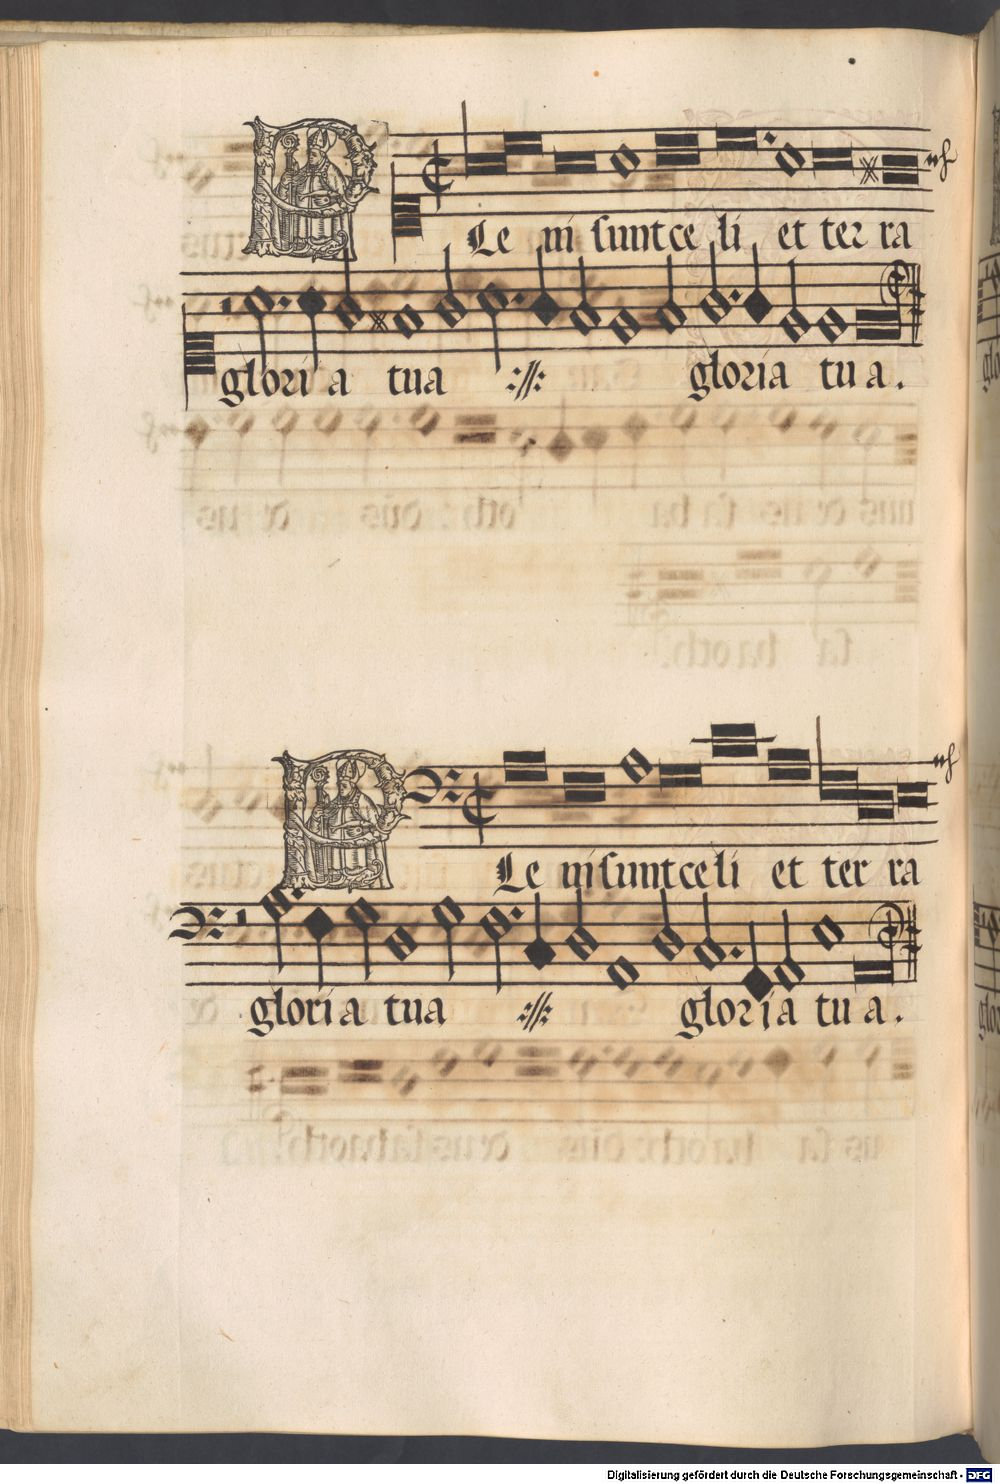 PLe ni sunt ce li et ter ra
glori a tua :||: gloria tu a.
PLe ni sunt celi et ter ra
glori a tua :||: gloria tu a.
Digitalisierung gefördert durch die Deutsche Forschungsgemeinschaft - DFG